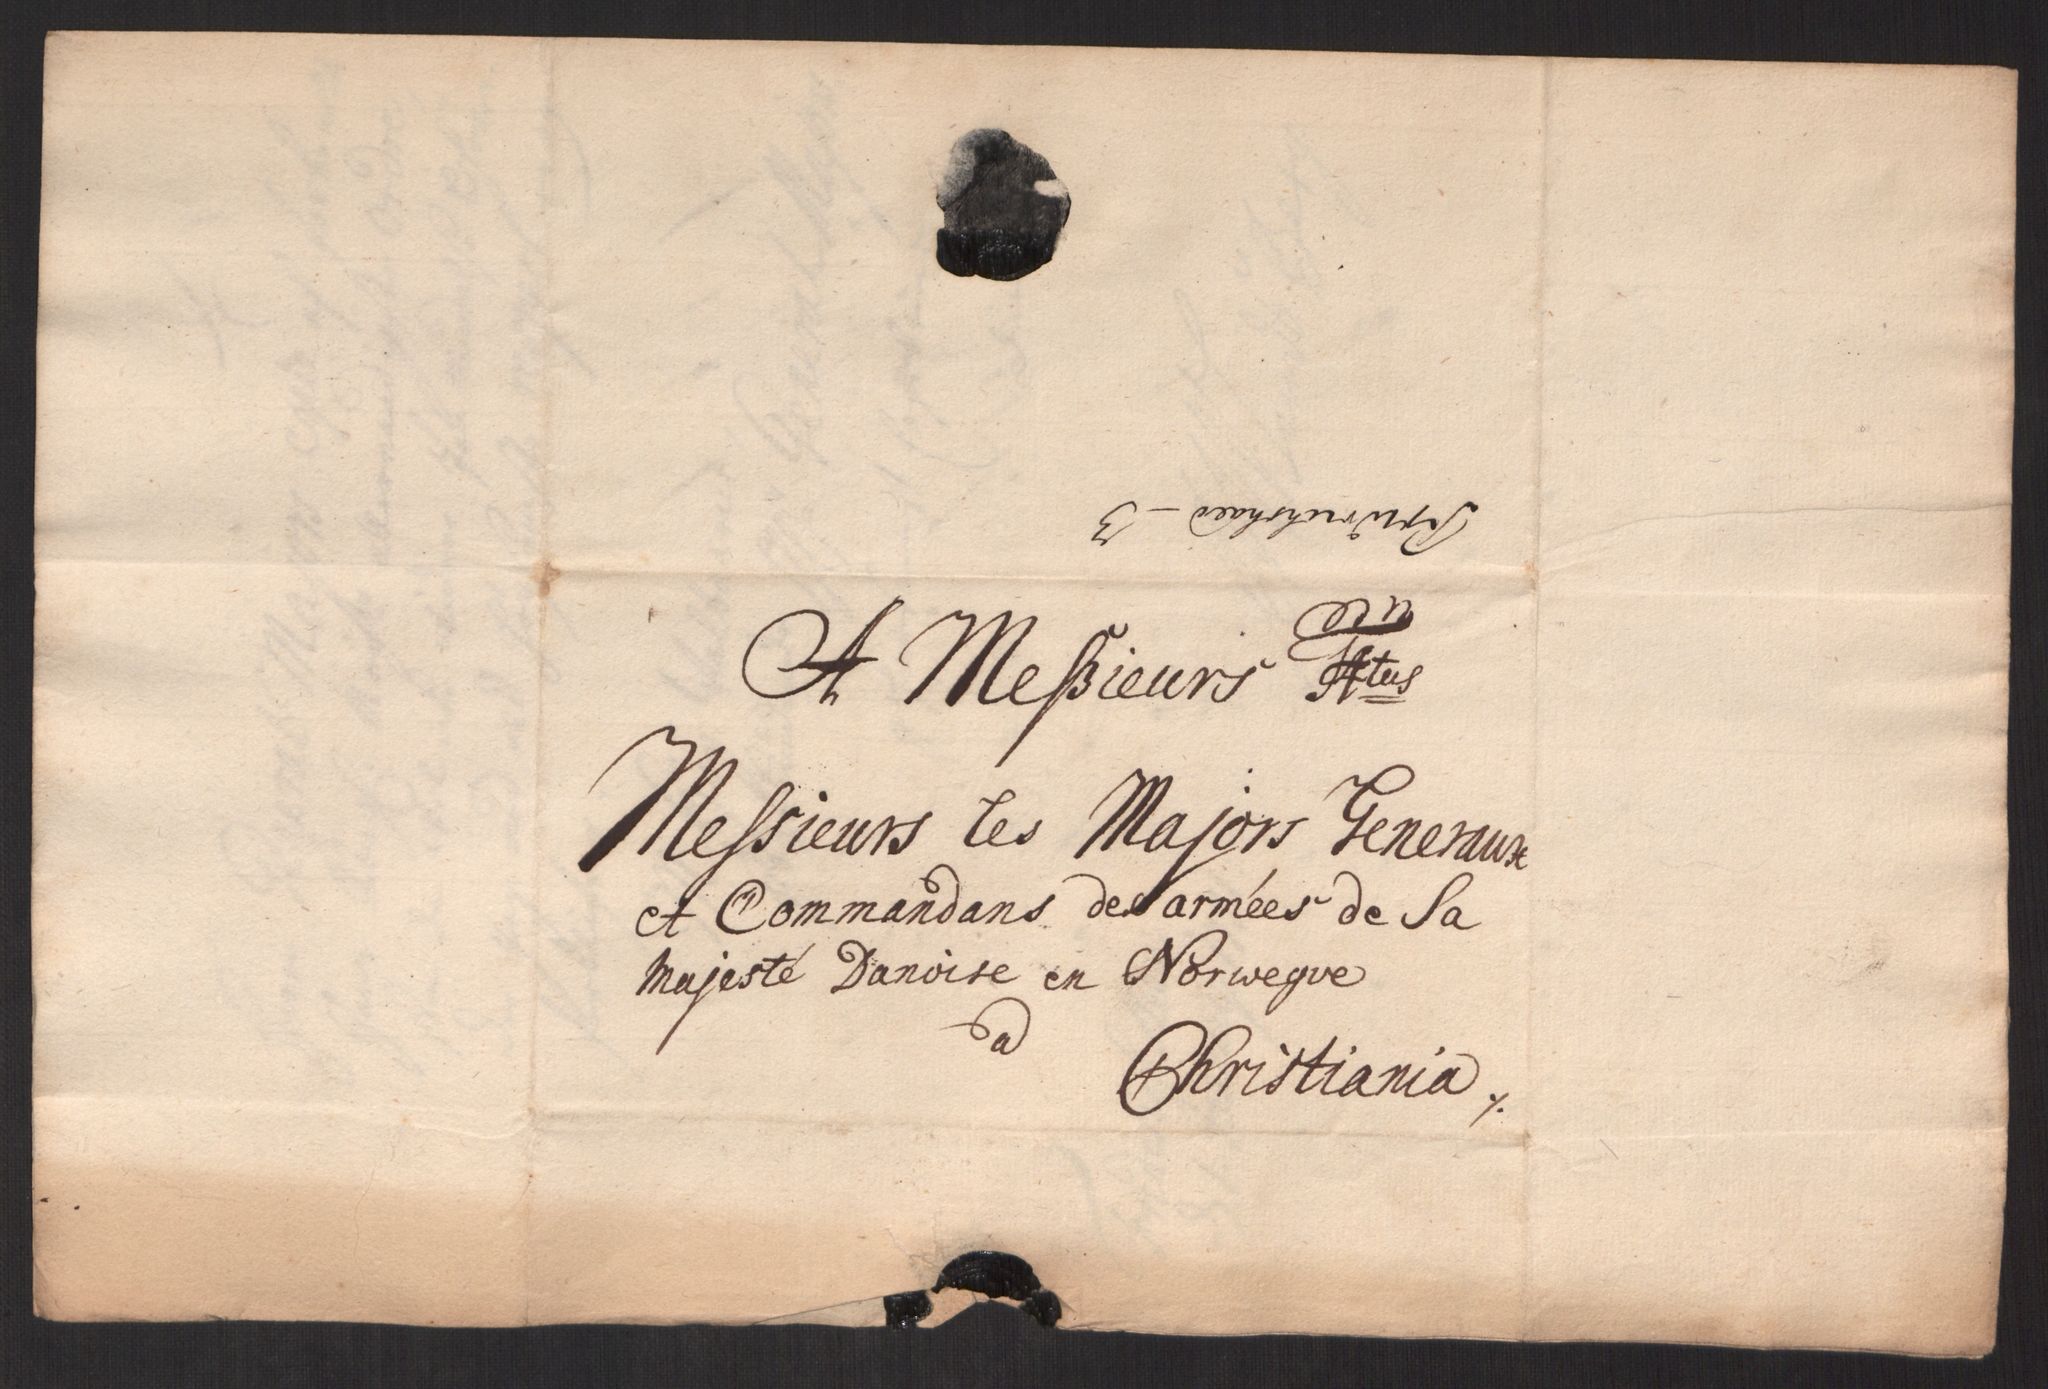 A Meßieurs
Messieurs les Majors Generaux
et Commandans des armées de Sa
Majesté Danoise en Norwegue
a
Christiania ./.